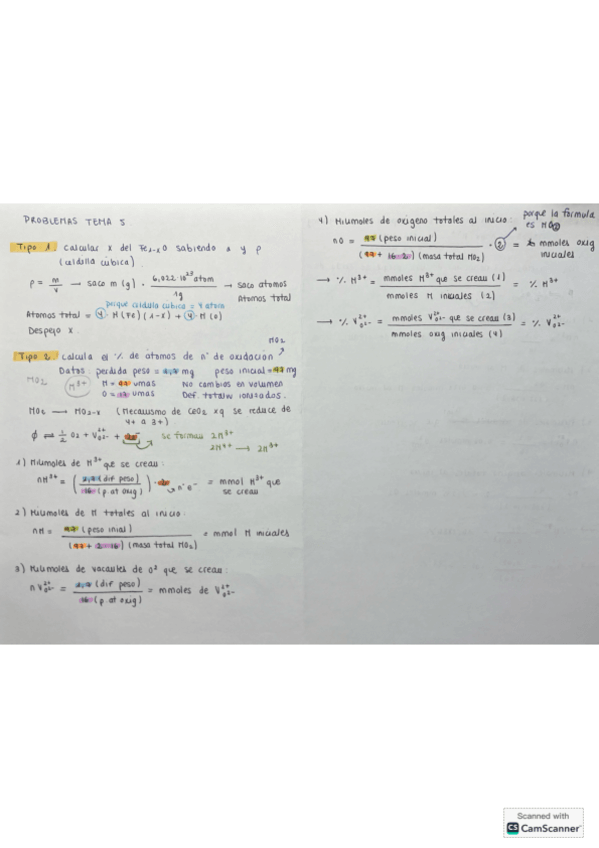 PROBLEMAS TEMA 5
Tipo 1 Calcular x del Fe1-xO sabiendo a y ρ
(celdilla cubica).
ρ = m/v → saco m (g) · 6,022·10²³ atom / 1g → saco atomos
Atomos total
porque celdilla cubica = 4 atom
Atomos total = 4 · M(Fe)(1-x) + 4 · M(O)
Despejo x.
MO2
Tipo 2 Calcula el % de atomos de nº de oxidación
Datos: perdida peso = mg peso inicial = mg
MO2 M³⁺ M = umas No cambios en volumen
O = umas Def. totalm ionizados.
MO2 → MO2-x (Mecanismo de CeO2 xq se reduce de
4+ a 3+)
ϕ ⇌ 1/2 O2 + V²⁺O²⁻ + 2e⁻ se forman 2M³⁺
2M⁴⁺ → 2M³⁺
1) Milimoles de M³⁺ que se crean:
nM³⁺ = ( (dif peso) / 16 (p. at oxig) ) · 2 = mmol M³⁺ que
nº e⁻ se crean
2) Milimoles de M totales al inicio:
nM = (peso inial) / ( + 2·16) (masa total MO2) = mmol M iniciales
3) Milimoles de vacantes de O² que se crean:
nV²⁺O²⁻ = (dif peso) / 16 (p. at oxig) = mmoles de V²⁺O²⁻
4) Milimoles de oxigeno totales al inicio: porque la formula
es MO2
nO = (peso inicial) / ( + 16·2) (masa total MO2) · 2 = mmoles oxig
iniciales
→ % M³⁺ = mmoles M³⁺ que se crean (1) / mmoles M iniciales (2) = % M³⁺
→ % V²⁺O²⁻ = mmoles V²⁺O²⁻ que se crean (3) / mmoles oxig iniciales (4) = % V²⁺O²⁻
Scanned with
CS CamScanner